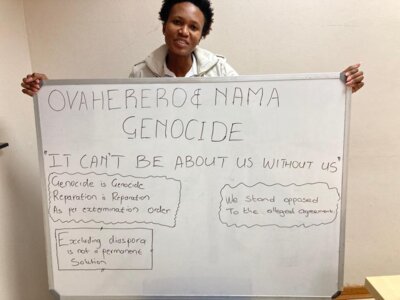 OVAHERERO & NAMA
GENOCIDE
"IT CAN'T BE ABOUT US WITHOUT US"
Genocide is Genocide
Reparation is Reparation
As per extermination order
We stand opposed
To the alleged agreement
Excluding diaspora
is not a permanent
Solution